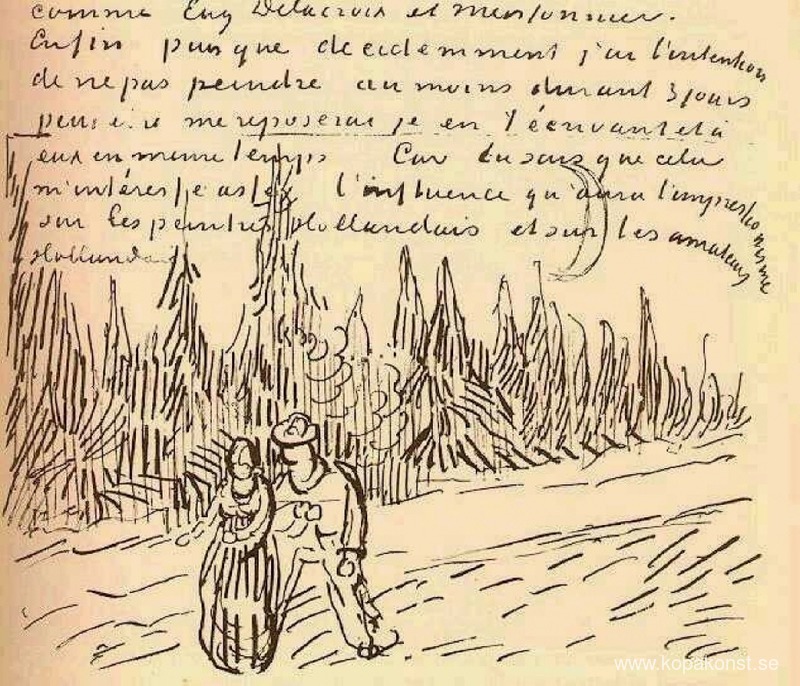 comme Eug Delacroix et Meissonnier.
Enfin puisque decidemment j'ai l'intention
de ne pas peindre au moins durant 3 jours
peut etre me reposerai je en t'écrivant et à
eux en meme temps Car tu sais que cela
m'intéresse assez l'influence qu'aura l'impressionisme
sur les peintres Hollandais et sur les amateurs
Hollandais
www.kopakonst.se